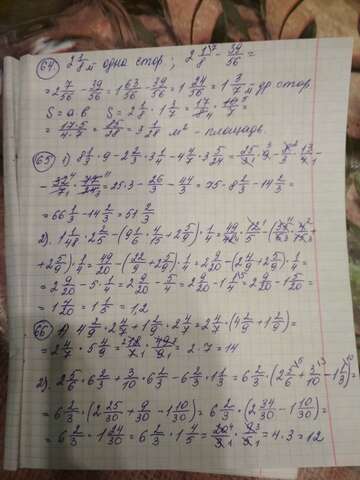 64. 2 1/8 м одна стор.; 2 1/8 - 39/56 =
= 2 7/56 - 39/56 = 1 63/56 - 39/56 = 1 24/56 = 1 3/7 м др стор.
S = a b S = 2 1/8 · 1 3/7 = 17/8 · 10/7 =
= 17·5/4·7 = 85/28 = 3 1/28 м² - площадь.
65. 1) 8 1/3 · 9 - 2 2/3 · 3 1/4 - 4 4/7 · 3 5/24 = 25/3 · 9 - 8/3 · 13/4 -
- 32/7 · 77/24 = 25·3 - 26/3 - 44/3 = 75 - 8 2/3 - 14 2/3 =
= 66 1/3 - 14 2/3 = 51 2/3
2). 1 1/48 · 2 2/5 - (9 1/6 · 4/15 + 2 5/9) · 1/4 = 49/48 · 12/5 - (
+ 2 5/9) · 1/4 = 49/20 - (22/9 + 2 5/9) · 1/4 = 2 9/20 - (2 4/9 + 2 5/9) · 1/4 =
= 2 9/20 - 5 · 1/4 = 2 9/20 - 5/4 = 2 9/20 - 1 1/4 = 2 9/20 - 1 5/20 =
= 1 4/20 = 1 1/5 = 1,2
66 1) 4 4/9 · 2 4/7 + 1 2/9 · 2 4/7 = 2 4/7 · (4 4/9 + 1 2/9) =
= 2 4/7 · 5 4/9 = 18/7 · 49/9 = 2·7 = 14
2). 2 5/6 · 6 2/3 + 3/10 · 6 2/3 - 6 2/3 · 1 1/3 = 6 2/3 · (2 5/6 + 3/10 - 1 1/3) =
= 6 2/3 · (2 25/30 + 9/30 - 1 10/30) = 6 2/3 · (2 34/30 - 1 10/30) =
= 6 2/3 · 1 24/30 = 6 2/3 · 1 4/5 = 20/3 · 9/5 = 4·3 = 12